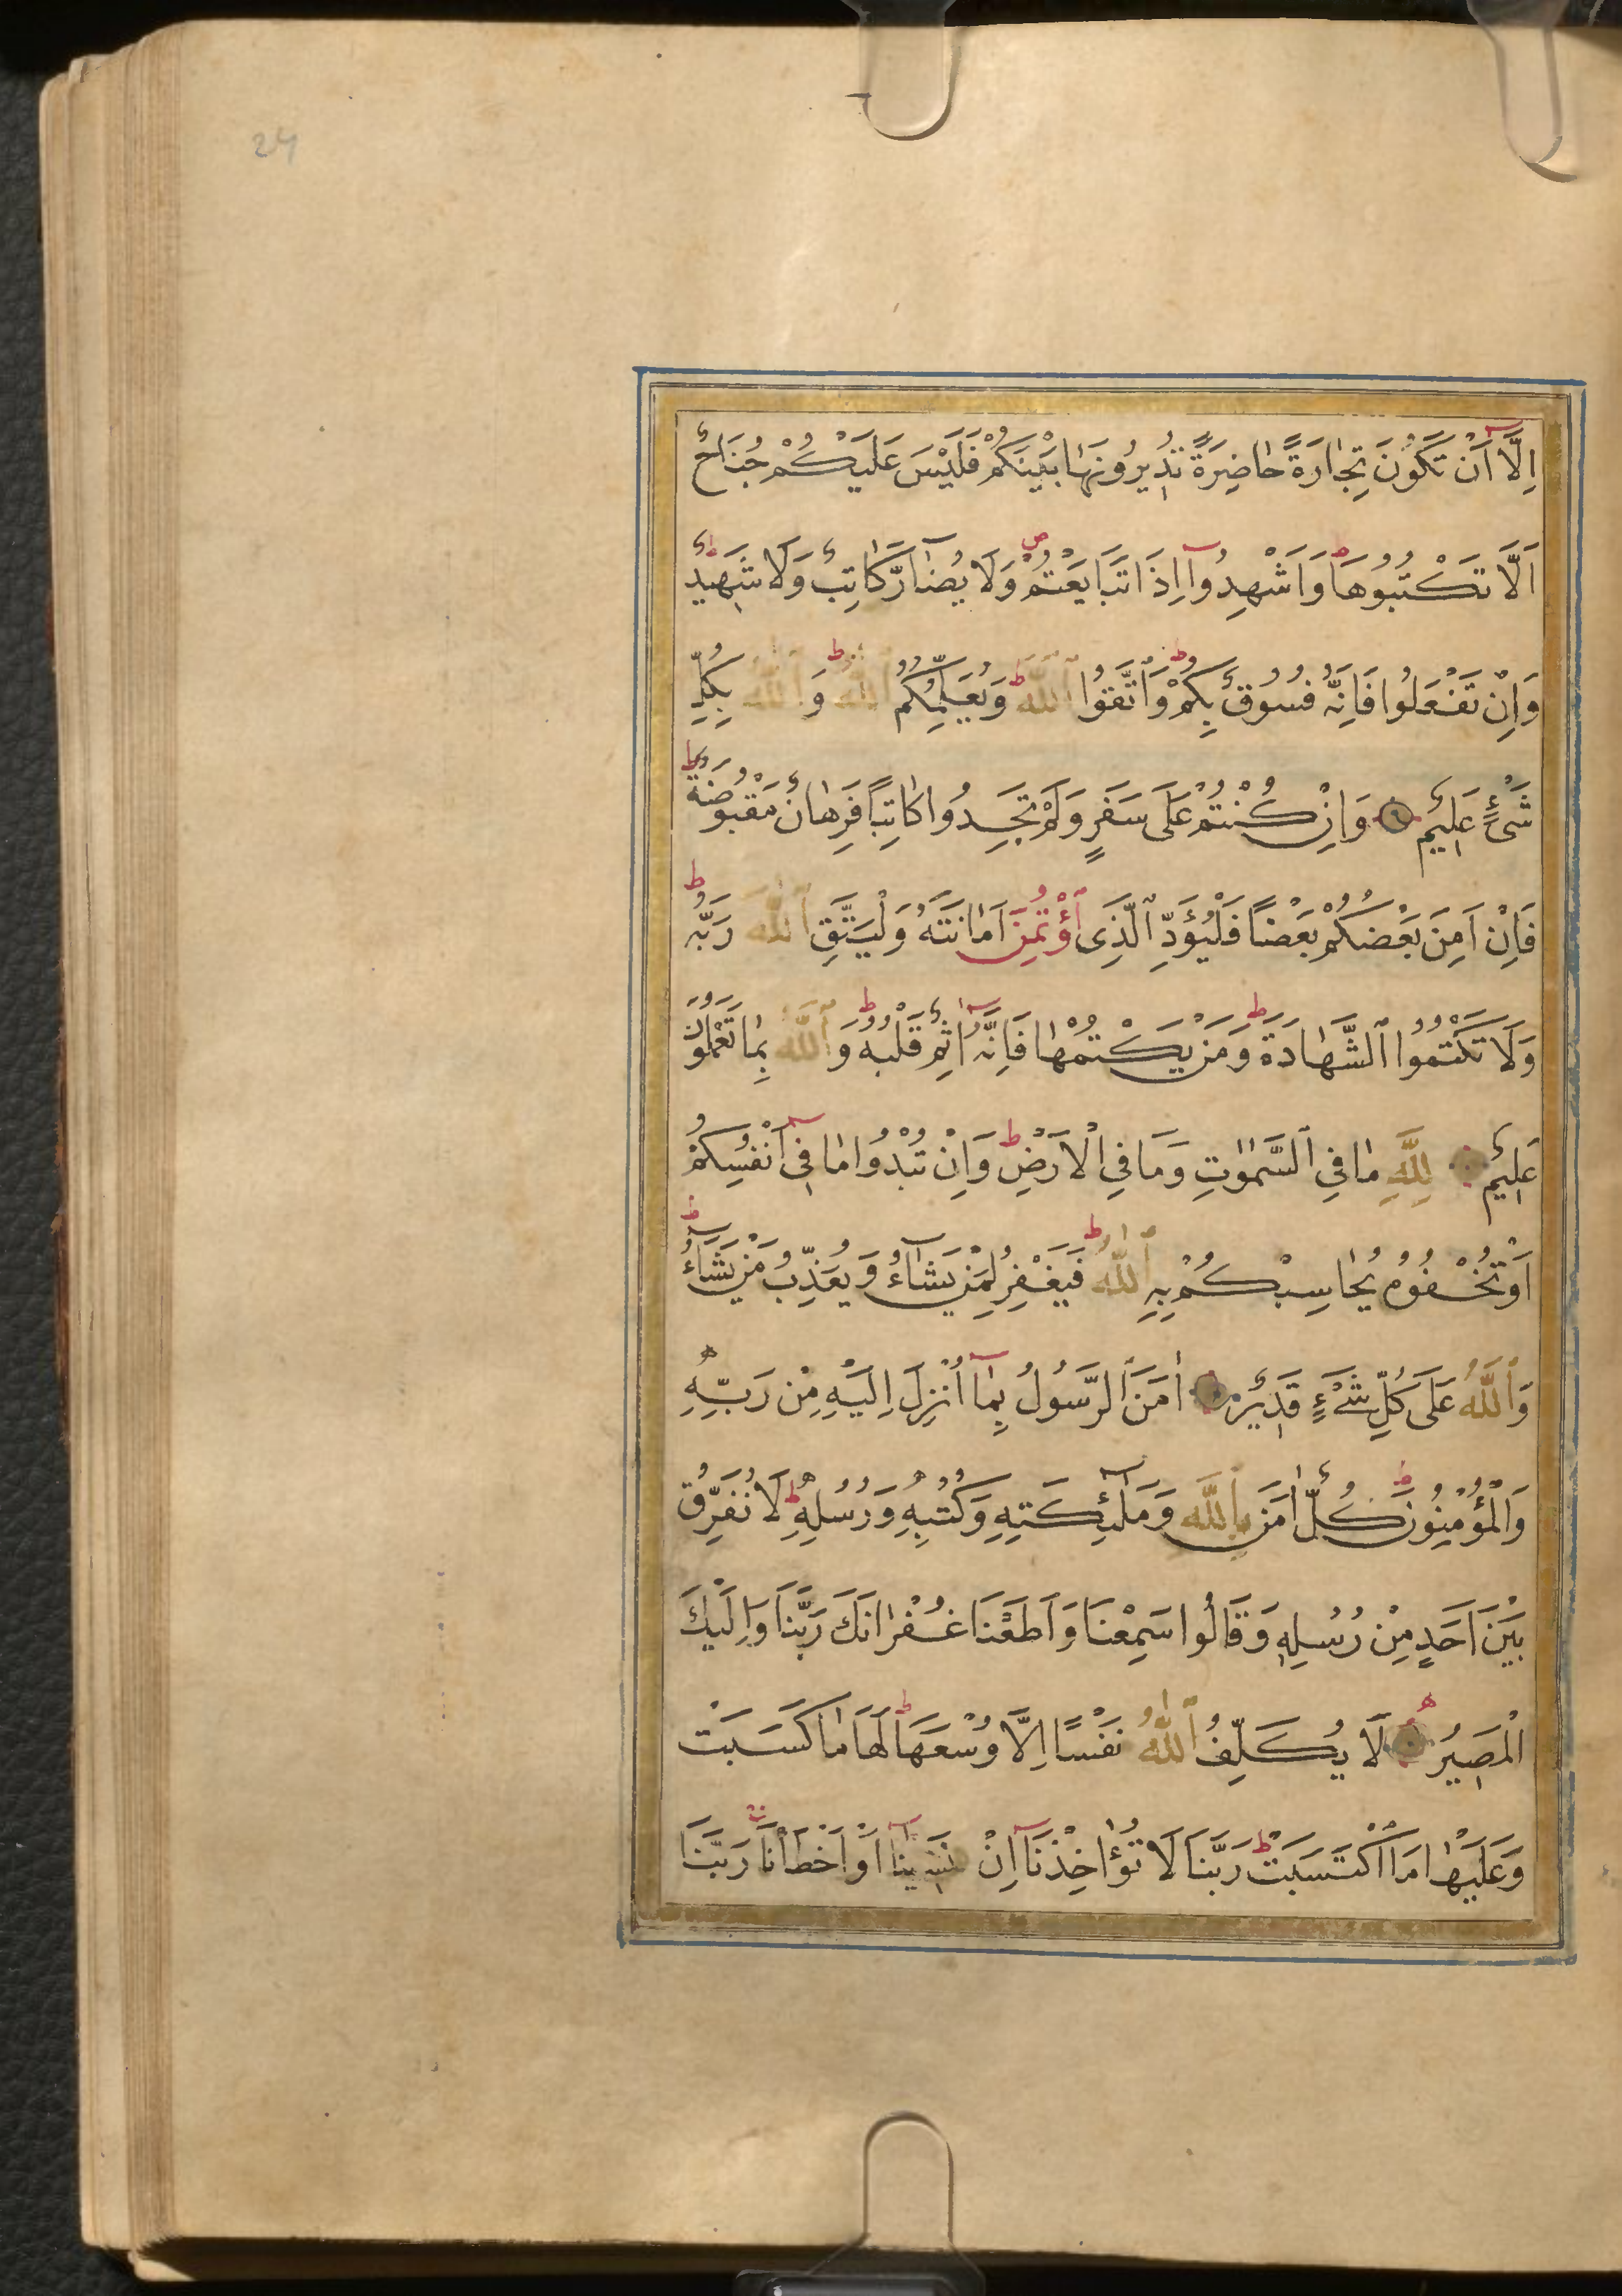 24
اِلَّا اَنْ تَكُونَ تِجَارَةً حَاضِرَةً تُدِيرُونَهَا بَيْنَكُمْ فَلَيْسَ عَلَيْكُمْ جُنَاحٌ
اَلَّا تَكْتُبُوهَا وَاَشْهِدُوا اِذَا تَبَايَعْتُمْ وَلَا يُضَارَّ كَاتِبٌ وَلَا شَهِيدٌ
وَاِنْ تَفْعَلُوا فَاِنَّهُ فُسُوقٌ بِكُمْ وَٱتَّقُوا ٱللّٰهَ وَيُعَلِّمُكُمُ ٱللّٰهُ وَٱللّٰهُ بِكُلِّ
شَىْءٍ عَلِيمٌ وَاِنْ كُنْتُمْ عَلَى سَفَرٍ وَلَمْ تَجِدُوا كَاتِبًا فَرِهَانٌ مَقْبُوضَةٌ
فَاِنْ اَمِنَ بَعْضُكُمْ بَعْضًا فَلْيُؤَدِّ ٱلَّذِى ٱؤْتُمِنَ اَمَانَتَهُ وَلْيَتَّقِ ٱللّٰهَ رَبَّهُ
وَلَا تَكْتُمُوا ٱلشَّهَادَةَ وَمَنْ يَكْتُمْهَا فَاِنَّهُ اٰثِمٌ قَلْبُهُ وَٱللّٰهُ بِمَا تَعْمَلُونَ
عَلِيمٌ لِلّٰهِ مَا فِي ٱلسَّمٰوَاتِ وَمَا فِي الْاَرْضِ وَاِنْ تُبْدُوا مَا فِى اَنْفُسِكُمْ
اَوْ تُخْفُوهُ يُحَاسِبْكُمْ بِهِ ٱللّٰهُ فَيَغْفِرُ لِمَنْ يَشَاءُ وَيُعَذِّبُ مَنْ يَشَاءُ
وَٱللّٰهُ عَلَى كُلِّ شَىْءٍ قَدِيرٌ اٰمَنَ ٱلرَّسُولُ بِمَا اُنْزِلَ اِلَيْهِ مِنْ رَبِّهِ
وَالْمُؤْمِنُونَ كُلٌّ اٰمَنَ بِاللّٰهِ وَمَلٰئِكَتِهِ وَكُتُبِهِ وَرُسُلِهِ لَا نُفَرِّقُ
بَيْنَ اَحَدٍ مِنْ رُسُلِهِ وَقَالُوا سَمِعْنَا وَاَطَعْنَا غُفْرَانَكَ رَبَّنَا وَاِلَيْكَ
الْمَصِيرُ لَا يُكَلِّفُ ٱللّٰهُ نَفْسًا اِلَّا وُسْعَهَا لَهَا مَا كَسَبَتْ
وَعَلَيْهَا مَا ٱكْتَسَبَتْ رَبَّنَا لَا تُؤَاخِذْنَا اِنْ نَسِينَا اَوْ اَخْطَأْنَا رَبَّنَا